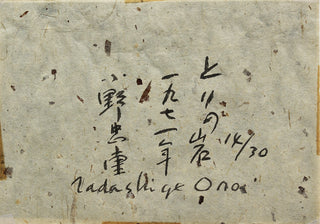 とりの岩
14/30
一九七一年
小野忠重
Tadashige Ono